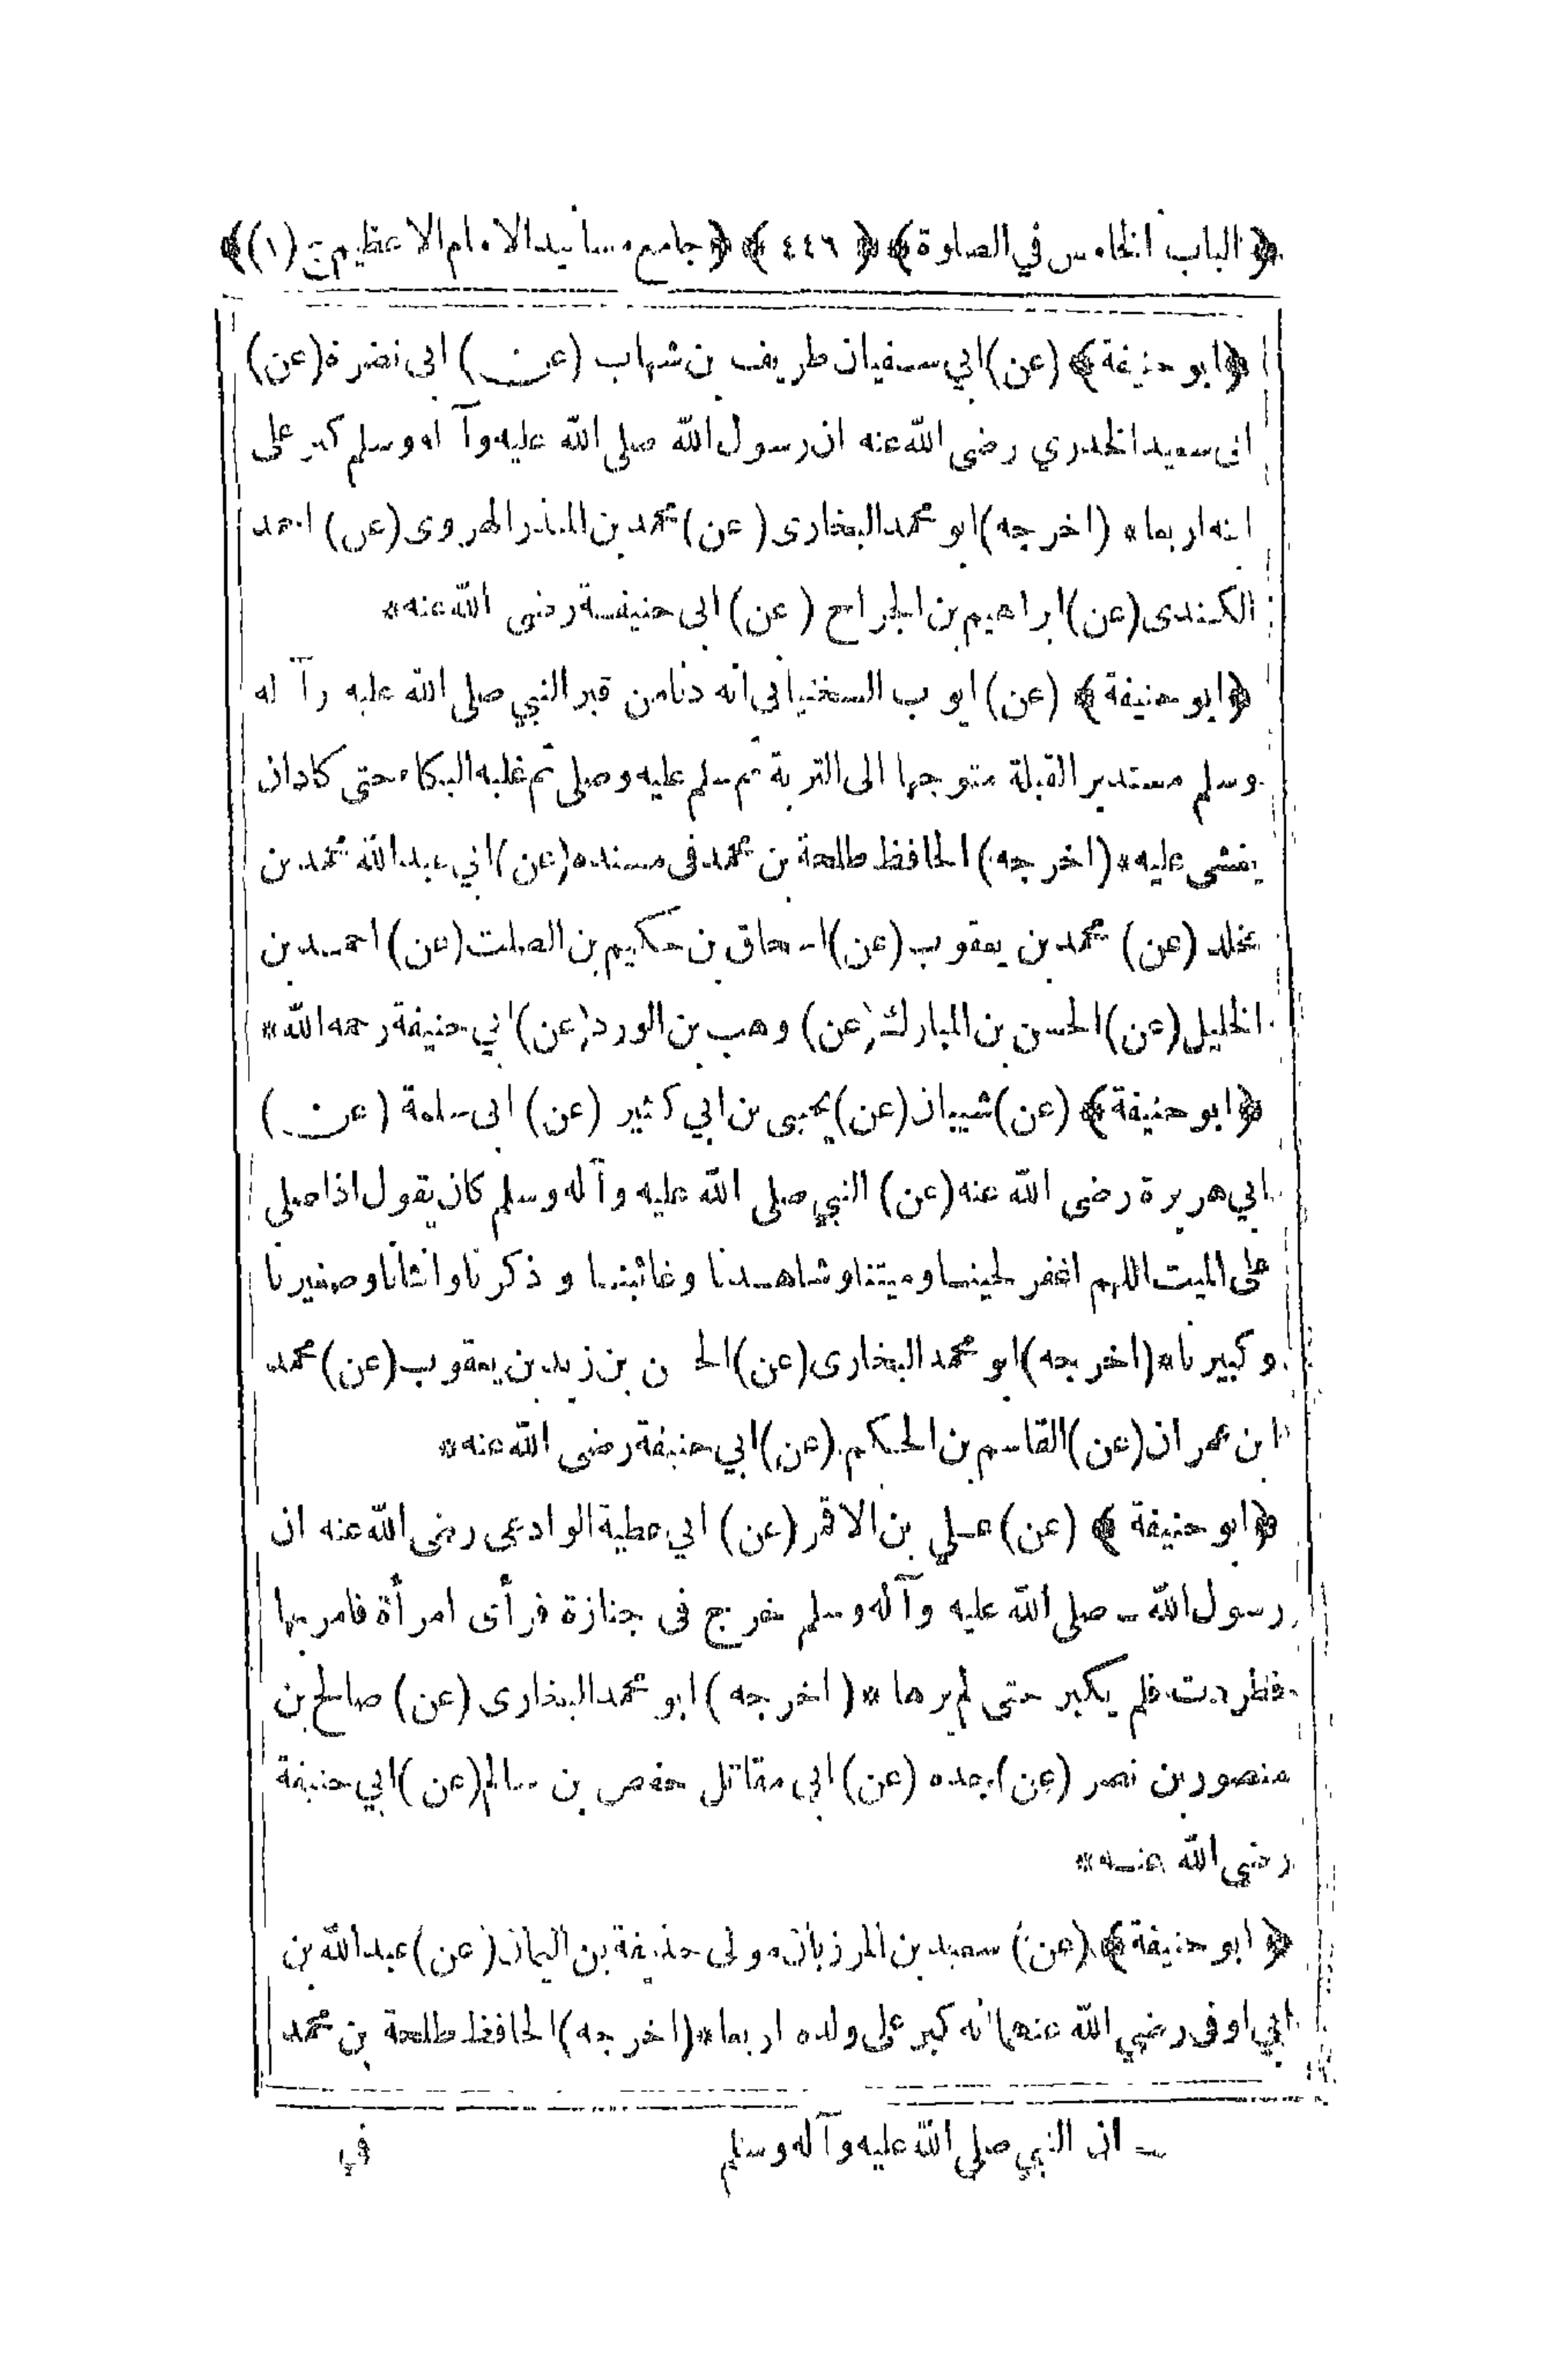 ﴿ الباب الخامس في الصلوة ﴾ ﴿ ٤٤٦ ﴾ ﴿ جامع مسانيد الامام الاعظم ج (١) ﴾
﴿ ابو حنيفة ﴾ (عن) ابي سفيان طريف بن شهاب (عن) ابى نضرة (عن)
ابى سعيد الخدري رضى الله عنه ان رسول الله صلى الله عليه وآله وسلم كبر على
ابنه اربعا * (اخرجه) ابو محمد البخارى (عن) محمد بن المنذر الهروى (عن) احمد
الكندى (عن) ابراهيم بن الجراح (عن) ابى حنيفة رضى الله عنه *
﴿ ابو حنيفة ﴾ (عن) ايوب السختيانى انه دنا من قبر النبي صلى الله عليه وآله
وسلم مستدبر القبلة متوجها الى التربة ثم سلم عليه وصلى ثم غلبه البكاء حتى كاد ان
يغشى عليه * (اخرجه) الحافظ طلحة بن محمد فى مسنده (عن) ابي عبد الله محمد بن
مخلد (عن) محمد بن يعقوب (عن) اسحاق بن حكيم بن الصلت (عن) احمد بن
الخليل (عن) الحسن بن المبارك (عن) وهب بن الورد (عن) ابي حنيفة رحمه الله *
﴿ ابو حنيفة ﴾ (عن) شيبان (عن) يحيى بن ابي كثير (عن) ابى سلمة (عن)
ابي هريرة رضى الله عنه (عن) النبي صلى الله عليه وآله وسلم كان يقول اذا صلى
على الميت اللهم اغفر لحينا وميتنا وشاهدنا وغائبنا و ذكرنا وانثانا وصغيرنا
وكبيرنا * (اخرجه) ابو محمد البخارى (عن) الحسن بن زيد بن يعقوب (عن) محمد
ابن عمران (عن) القاسم بن الحكم (عن) ابي حنيفة رضى الله عنه *
﴿ ابو حنيفة ﴾ (عن) علي بن الاقمر (عن) ابي عطية الوادعى رضى الله عنه ان
رسول الله ـ صلى الله عليه وآله وسلم خرج فى جنازة فرأى امرأة فامر بها
فطردت فلم يكبر حتى لم يرها * (اخرجه) ابو محمد البخارى (عن) صالح بن
منصور بن نصر (عن) جده (عن) ابى مقاتل حفص بن سالم (عن) ابي حنيفة
رضى الله عنه *
﴿ ابو حنيفة ﴾ (عن) سعيد بن المرزبان مولى حذيفة بن اليمان (عن) عبد الله بن
ابي اوفى رضي الله عنهما انه كبر على ولده اربعا * (اخرجه) الحافظ طلحة بن محمد
ـ ان النبي صلى الله عليه وآله وسلم
في